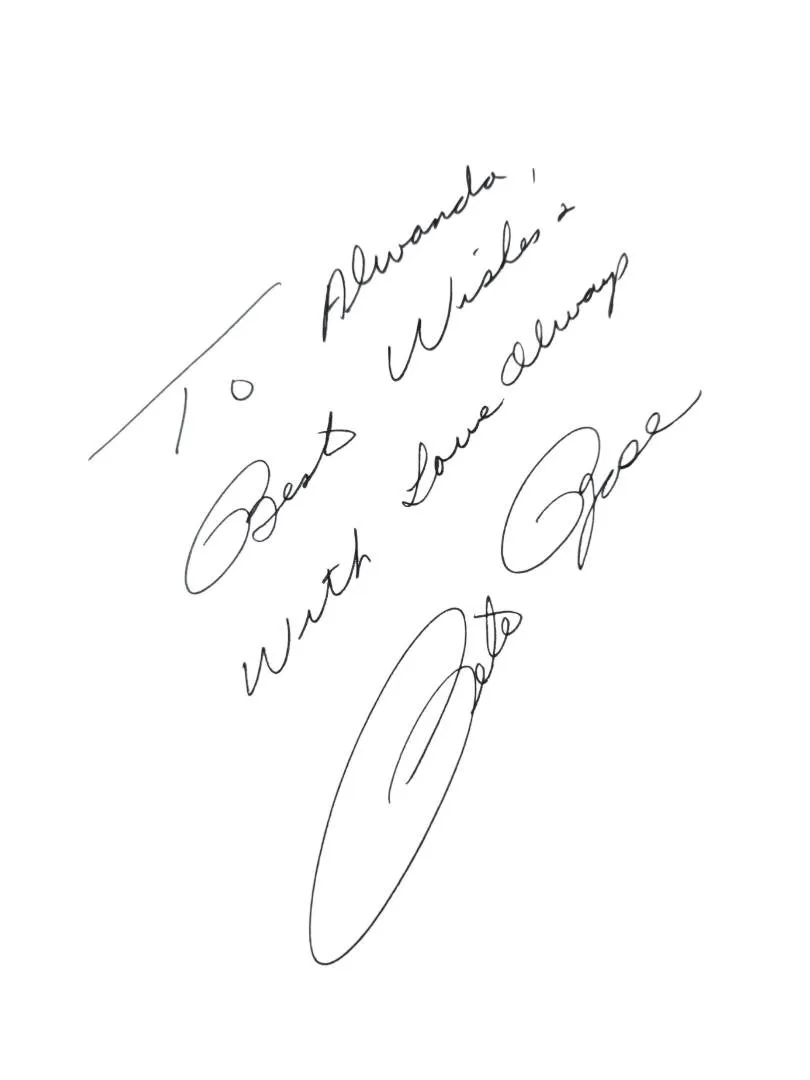 To Alwanda,
Best Wishes &
With Love Always
Pete Rose